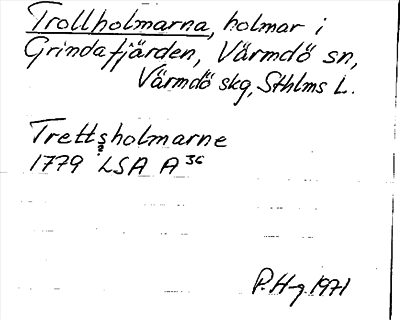 Trollholmarna, holmar i
Grindafjärden, Värmdö sn,
Värmdö skg, Sthlms L.
Trettsholmarne
?
1779 LSA A 36
P. H-g 1971